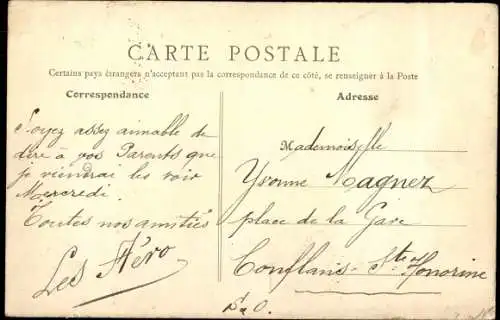 CARTE POSTALE
Certains pays étrangers n'acceptant pas la correspondance de ce côté, se renseigner à la Poste
Correspondance
Soyez assez aimable de
dire à vos Parents que
je viendrai les voir
Mercredi.
Toutes nos amitiés
Les
Adresse
Mademoiselle
Yvonne Magnez
place de la Gare
Conflans-Ste Honorine
S-O.